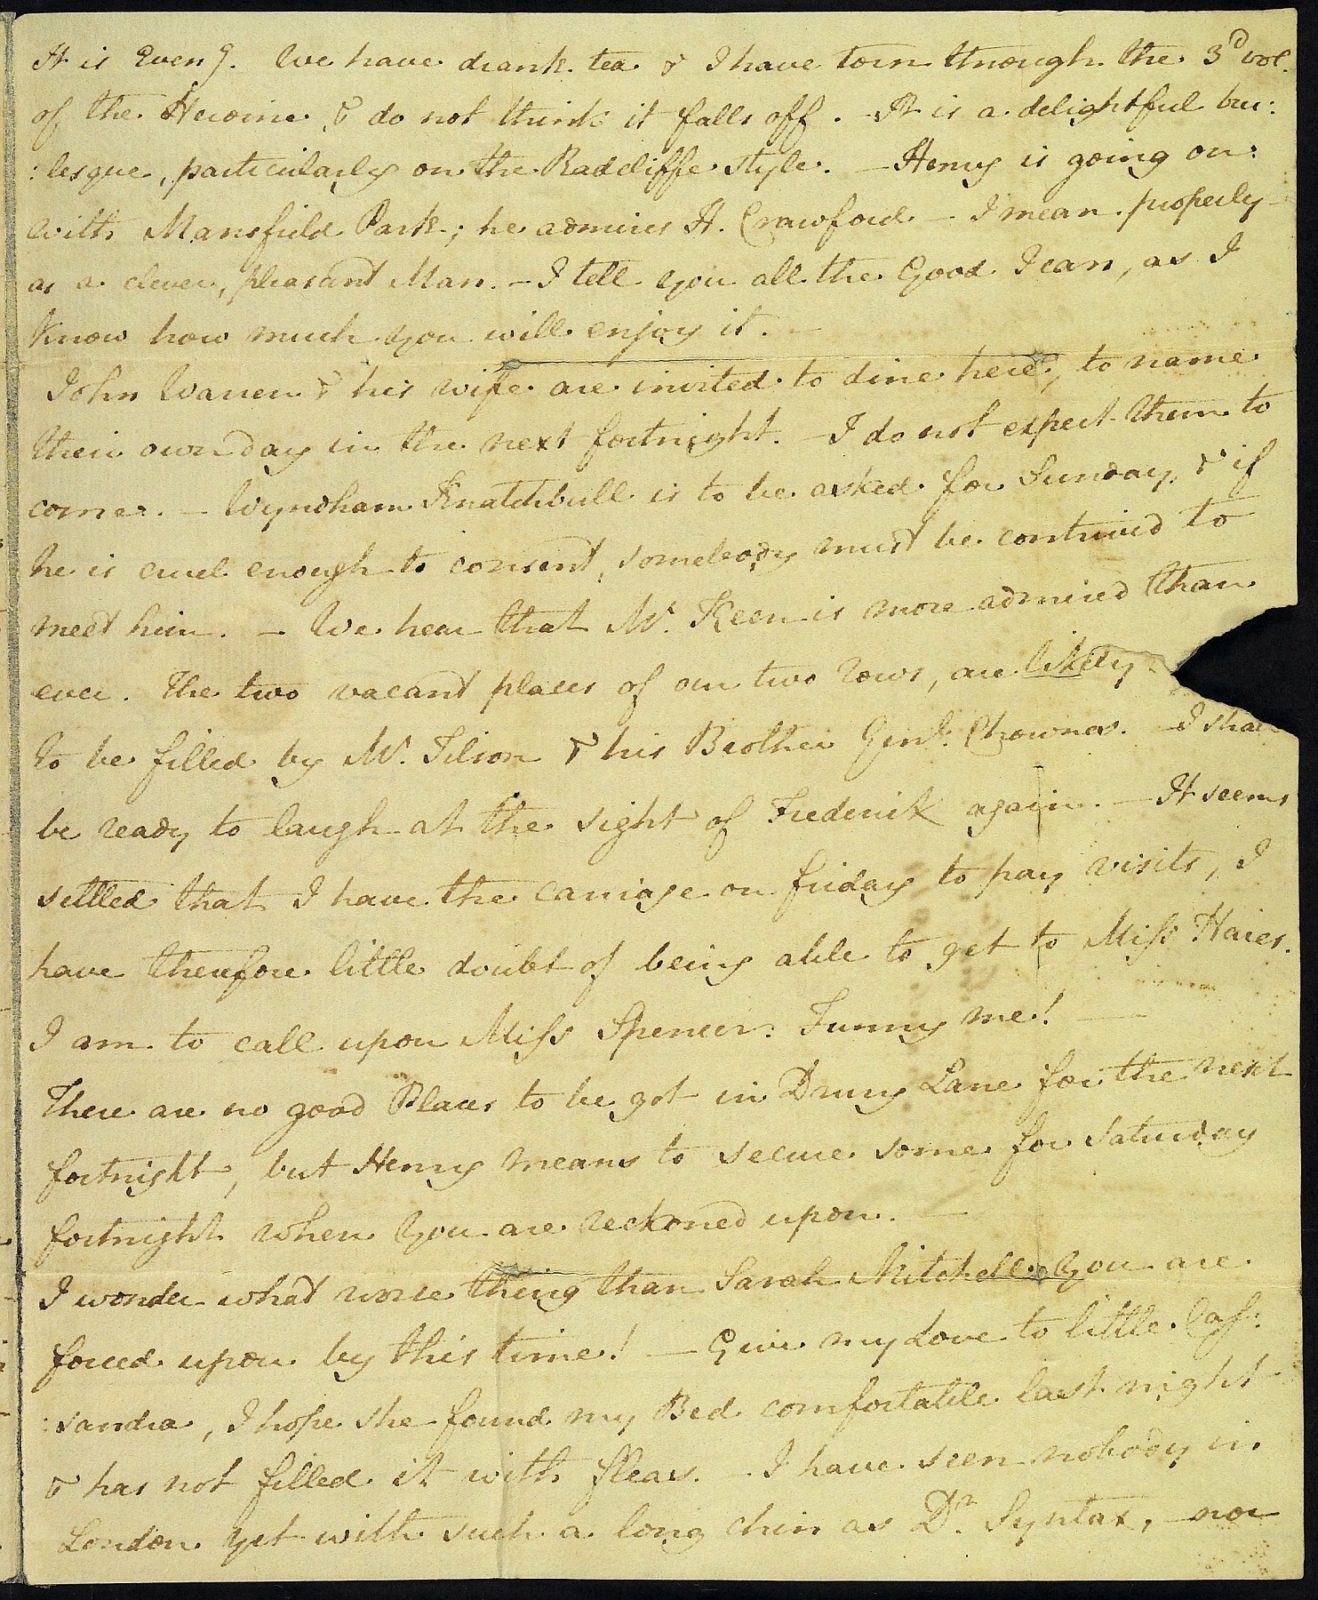 It is Eveng. We have drank tea & I have torn through the 3d vol.
of the Heroine, & do not think it falls off. – It is a delightful bur:
:lesque, particularly on the Radcliffe style. – Henry is going on
with Mansfield Park; he admires H. Crawford – I mean properly –
as a clever, pleasant Man. – I tell you all the Good I can, as I
know how much you will enjoy it. –
John Warren & his wife are invited to dine here, to name
their own day in the next fortnight. – I do not expect them to
come. – Wyndham Knatchbull is to be asked for Sunday, & if
he is cruel enough to consent, somebody must be contrived to
meet him. – We hear that Mr. Keen is more admired than
ever. The two vacant places of our two rows, are likely
to be filled by Mr. Tilson & his Brother Genl. Chownes. – I shall
be ready to laugh at the sight of Frederick again. – It seems
settled that I have the carriage on friday to pay visits, I
have therefore little doubt of being able to get to Miss Hares.
I am to call upon Miss Spencer: Funny me! –
There are no good Places to be got in Drury Lane for the next
fortnight, but Henry means to secure some for Saturday
fortnight when You are reckoned upon. –
I wonder what worse thing than Sarah Mitchell You are
forced upon by this time! – Give my Love to little Cas:
:sandra, I hope she found my Bed comfortable last night
& has not filled it with fleas. – I have seen nobody in
London yet with such a long chin as Dr. Syntax, nor